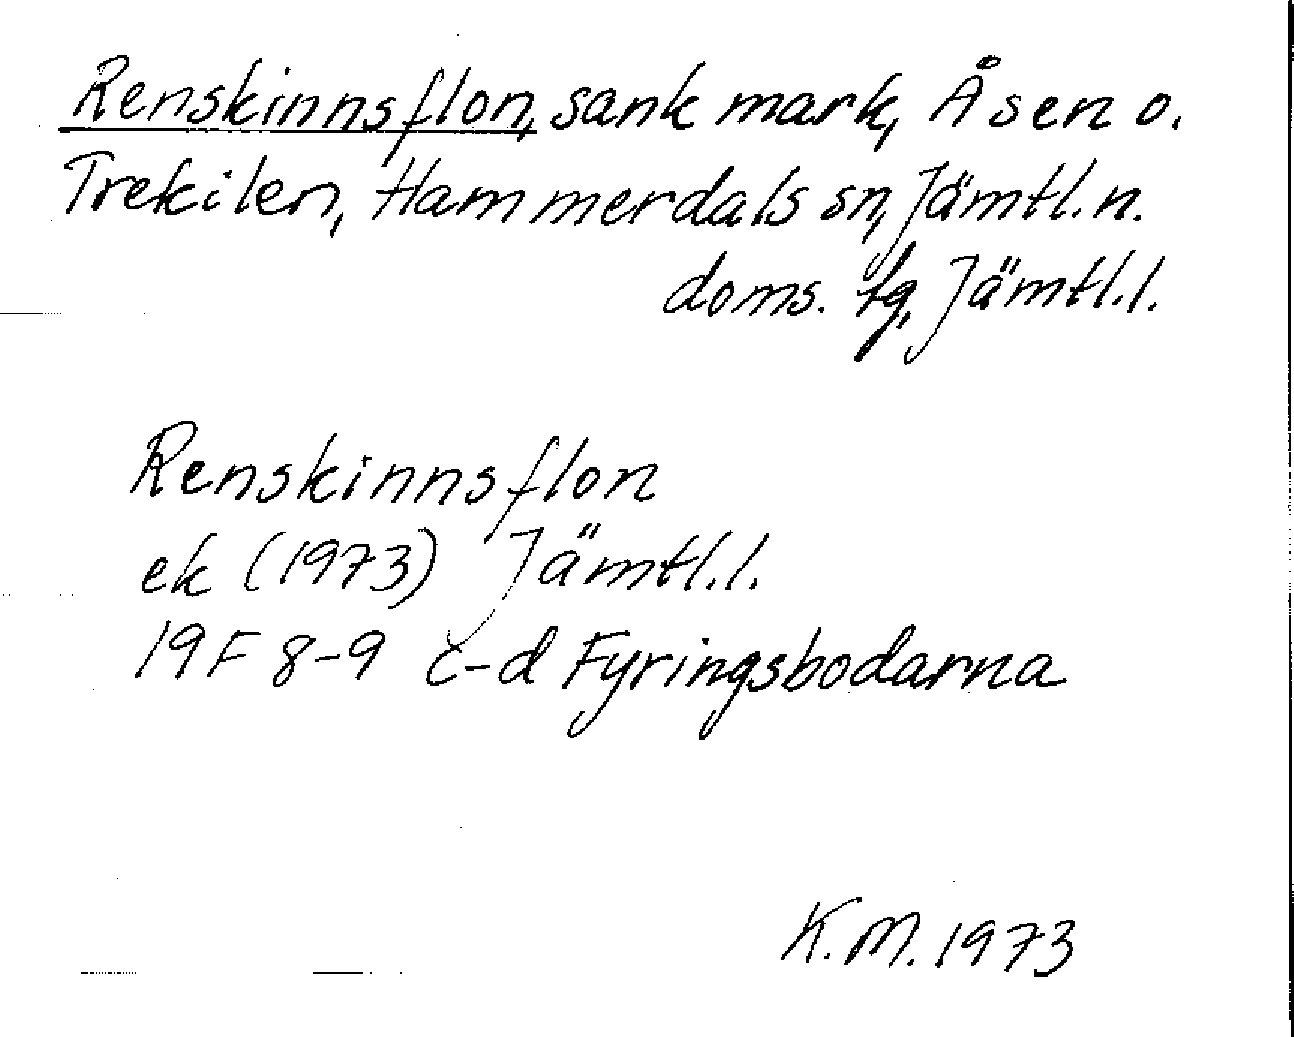 Renskinnsflon, sank mark, Åsen o.
Trekilen, Hammerdals sn, Jämtl. n.
doms. tg, Jämtl. l.
Renskinnsflon
ek (1973) Jämtl. l.
19F 8-9 c-d Fyringsbodarna
K. M. 1973